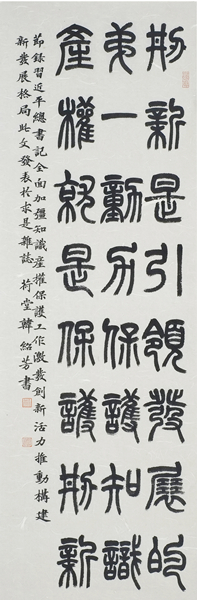 刱新是引領發展的
弟一動力保護知識
產權就是保護刱新
節錄習近平總書記全面加彊知識產權保護工作激發創新活力推動構建
新發展格局此文發表於求是雜誌 荷堂韓紹芳書